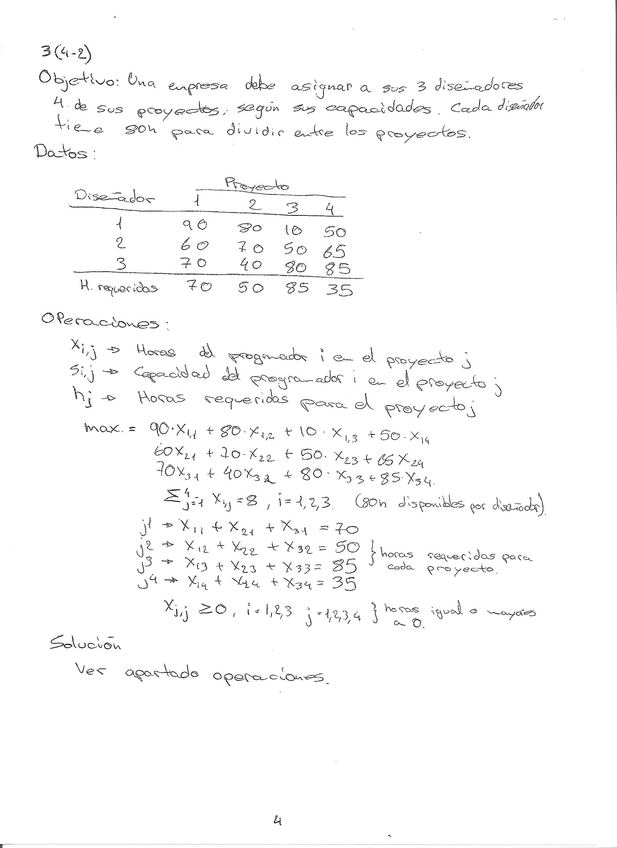 3(4-2)
Objetivo: Una empresa debe asignar a sus 3 diseñadores
4 de sus proyectos, según sus capacidades. Cada diseñador
tiene 80h para dividir entre los proyectos.
Datos:
Proyecto
Diseñador 1 2 3 4
1 90 80 10 50
2 60 70 50 65
3 70 40 80 85
H. requeridas 70 50 85 35
Operaciones:
Xi,j → Horas del progmador i en el proyecto j
Si,j → Capacidad del programador i en el proyecto j
hj → Horas requeridas para el proyecto j
max. = 90·X1,1 + 80·X1,2 + 10·X1,3 + 50·X14
60X21 + 70·X22 + 50·X23 + 65X24
70X31 + 40X32 + 80·X33 + 85·X34.
∑⁴j=1 Xij = 8, i=1,2,3. (80h disponibles por diseñador).
j1 → X11 + X21 + X31 = 70
j2 → X12 + X22 + X32 = 50 } horas requeridas para
j3 → X13 + X23 + X33 = 85 cada proyecto.
j4 → X14 + X24 + X34 = 35
Xi,j ≥ 0, i=1,2,3 j=1,2,3,4 } horas igual o mayores
a 0.
Solución
Ver apartado operaciones.
4